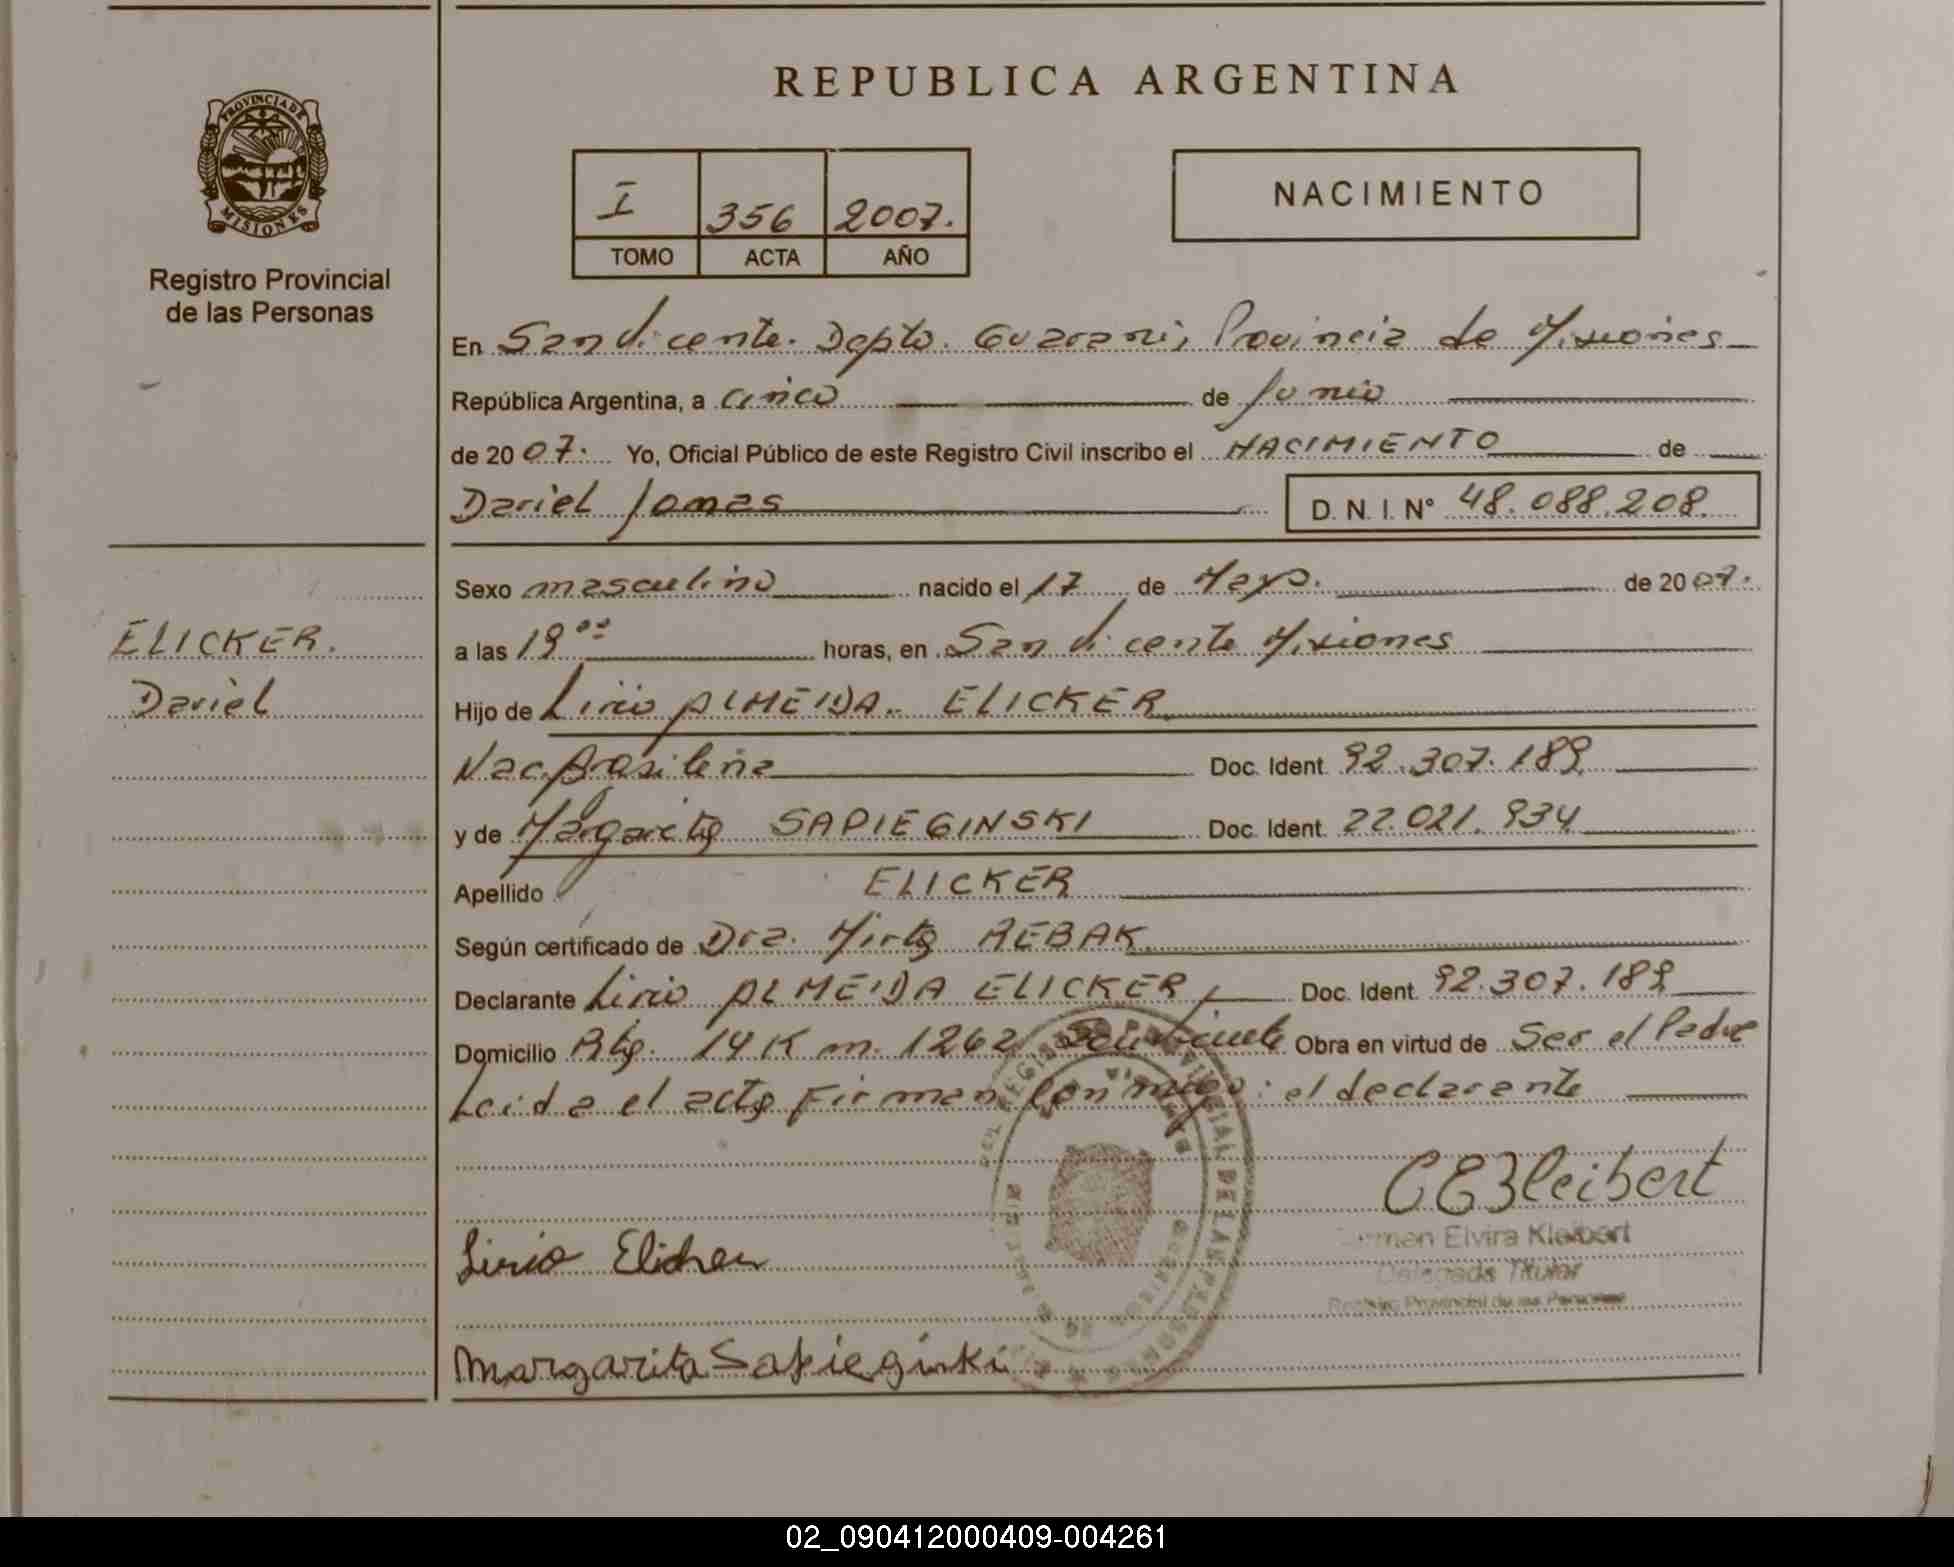 REPUBLICA ARGENTINA
PROVINCIA DE
MISIONES
Registro Provincial
de las Personas
I 356 2007.
TOMO ACTA AÑO
NACIMIENTO
En San Vicente. Depto. Guarani, Provincia de Misiones
República Argentina, a cinco de Junio
de 2007. Yo, Oficial Público de este Registro Civil inscribo el NACIMIENTO de
Dariel Jonas D. N. I. N° 48.088.208.
Sexo masculino nacido el 17 de Mayo. de 2007.
ELICKER.
Dariel
a las 19 00 horas, en San Vicente Misiones
Hijo de Lirio ALMEIDA ELICKER
Nac. Brasileña Doc. Ident. 92.307.189
y de Margarita SAPIEGINSKI Doc. Ident. 22.021.934
Apellido ELICKER
Según certificado de Dra. Mirta REBAK
Declarante Lirio ALMEIDA ELICKER Doc. Ident. 92.307.189
Domicilio Rta. 14 K m. 1262 San Vicente Obra en virtud de Ser el Padre
Leida el acta Firman Conmigo: el declarante
CEKleibert
Elvira Kleibert
Delegada Titular
Registro Provincial de las Personas
Lirio Elicker
Margarita Sapieginski
02_090412000409-004261